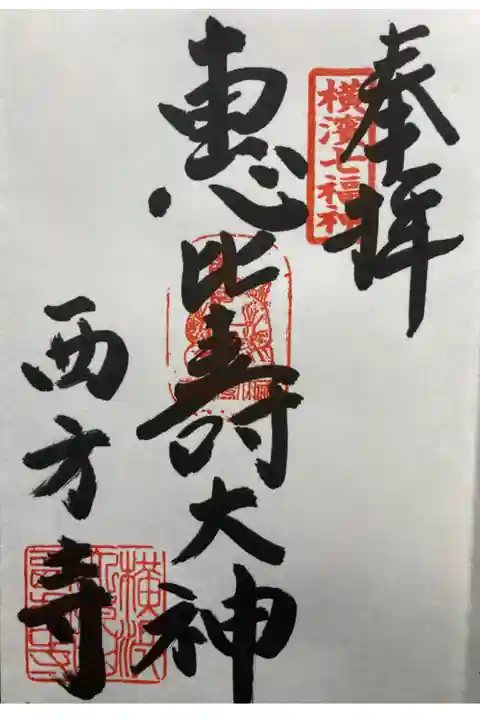 奉拝
横濱七福神
恵比寿大神
西方寺
横浜